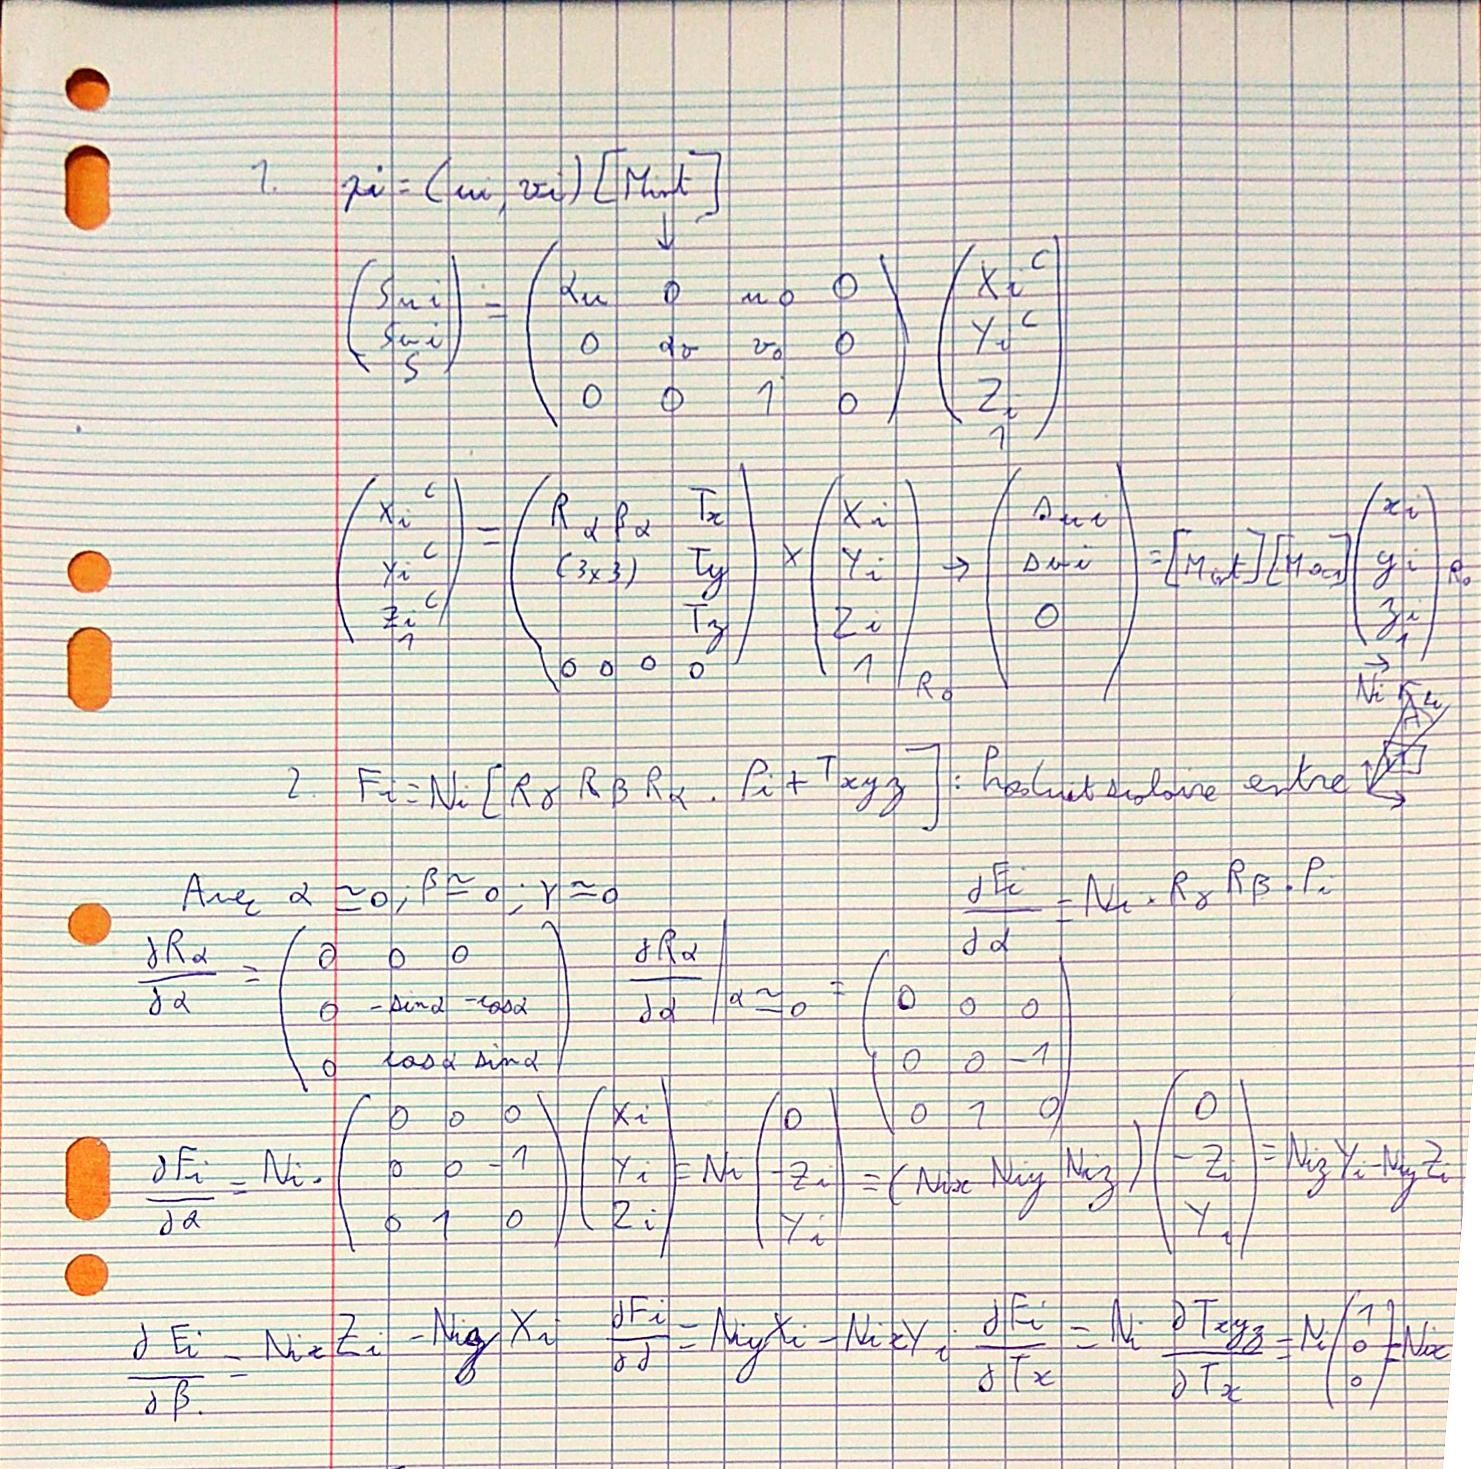 1. pi = (ui, vi) [Mint]
↓
(Sui Svi S) = (αu 0 u0 0 / 0 αv v0 0 / 0 0 1 0) (Xi^C Yi^C Zi 1)
(Xi^C Yi^C Zi^C 1) = (Rαβα Tx / (3x3) Ty / Tz / 0 0 0 0) × (Xi Yi Zi 1)R0 → (sui svi 0) = [Mint] [M] (xi yi zi 1)R0
Ni
2 Fi = Ni [Rγ Rβ Rα . Pi + Txyz] : Produit scalaire entre
Avec α ≃ 0 ; β ≃ 0 ; γ ≃ 0 ∂Fi/∂α = Ni . Rγ Rβ . Pi
∂Rα/∂α = (0 0 0 / 0 -sinα -cosα / 0 cosα sinα) ∂Rα/∂α |α≃0 = (0 0 0 / 0 0 -1 / 0 1 0)
∂Fi/∂α = Ni . (0 0 0 / 0 0 -1 / 0 1 0) (Xi Yi Zi) = Ni (0 -Zi Yi) = (Nix Niy Niz) (0 -Zi Yi) = Niz Yi - Niy Zi
∂Fi/∂β = Nix Zi - Niz Xi ∂Fi/∂δ = Niy Xi - Nix Yi ∂Fi/∂Tx = Ni ∂Txyz/∂Tx = Ni (1 0 0) = Nix